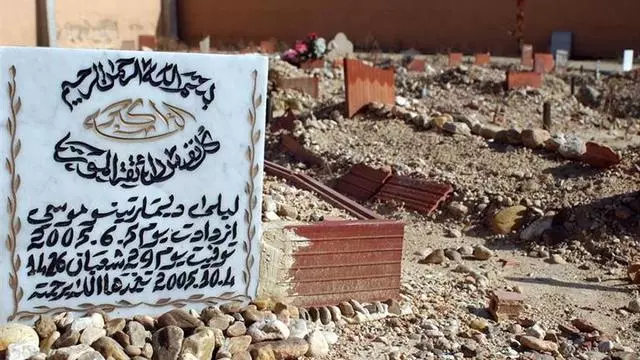 بسم الله الرحمن الرحيم
الفاتحة
كل نفس ذائقة الموت
ليلى ديمارتينو موسى
ازدادت يوم 5.6.2005
توفيت يوم 29 شعبان 1426
4.10.2005 تغمدها الله برحمته